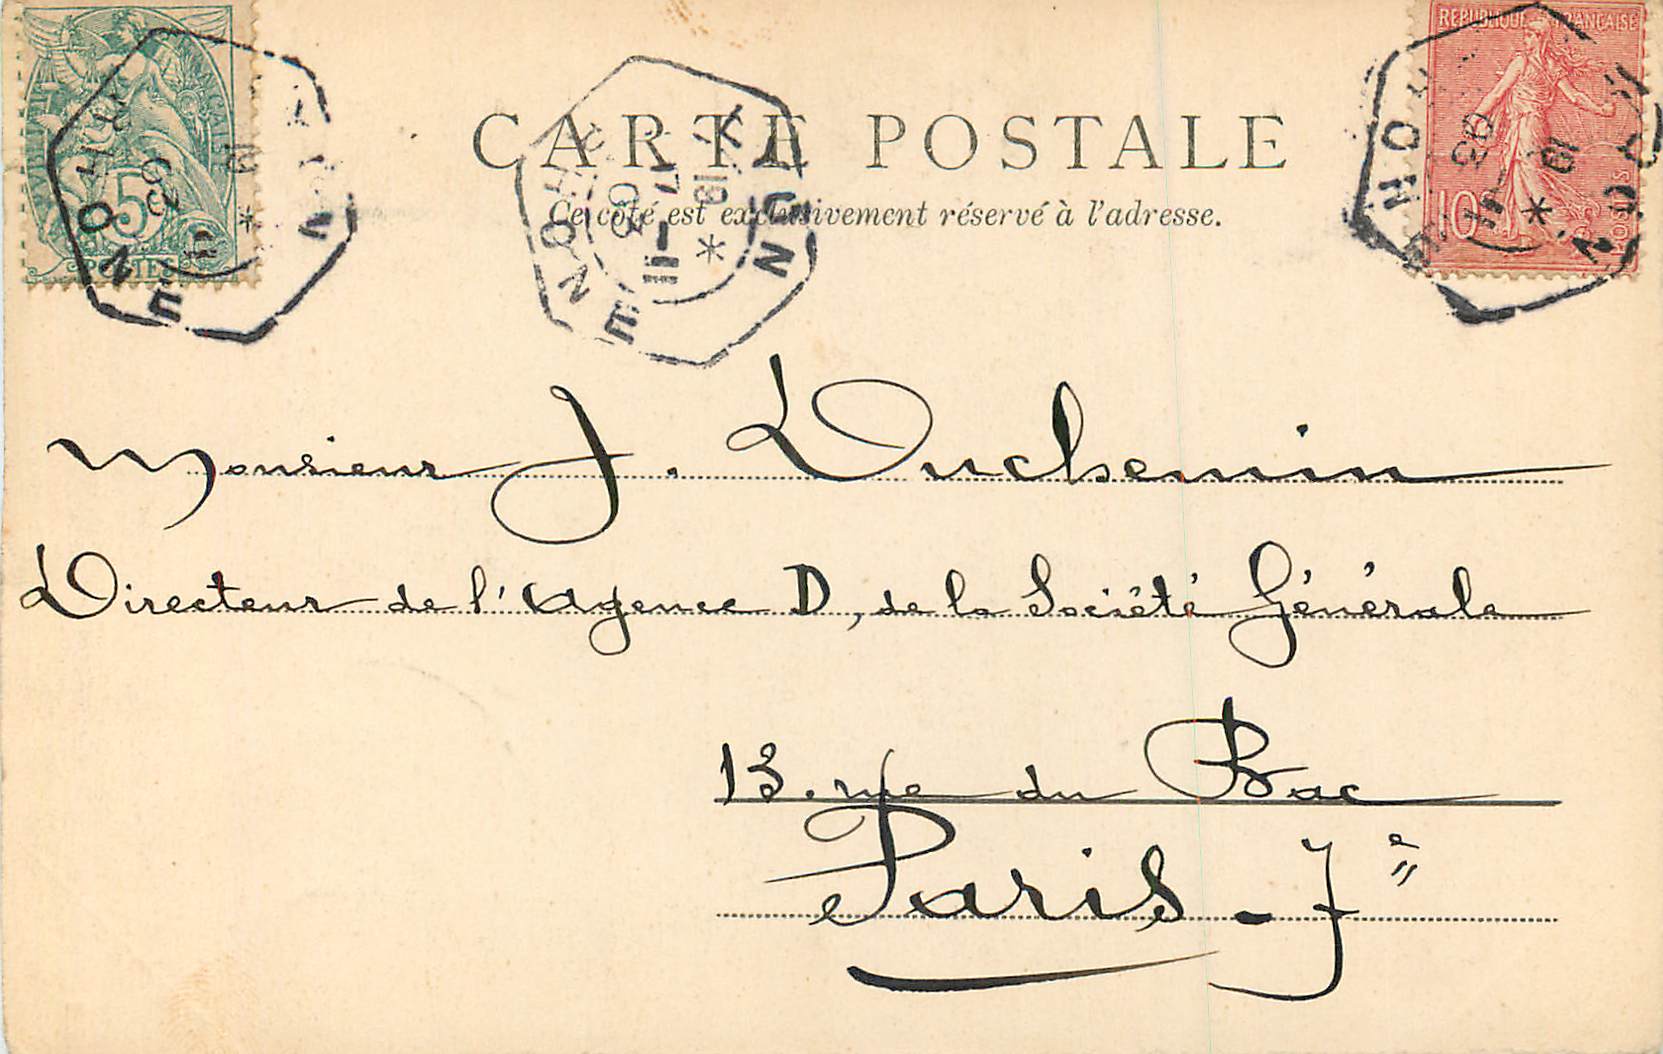 CARTE POSTALE
Ce côté est exclusivement réservé à l'adresse.
RÉPUBLIQUE FRANÇAISE
10
5
POSTES
Monsieur J. Duchemin
Directeur de l'Agence D, de la Société Générale
13. rue du Bac
Paris - 7e